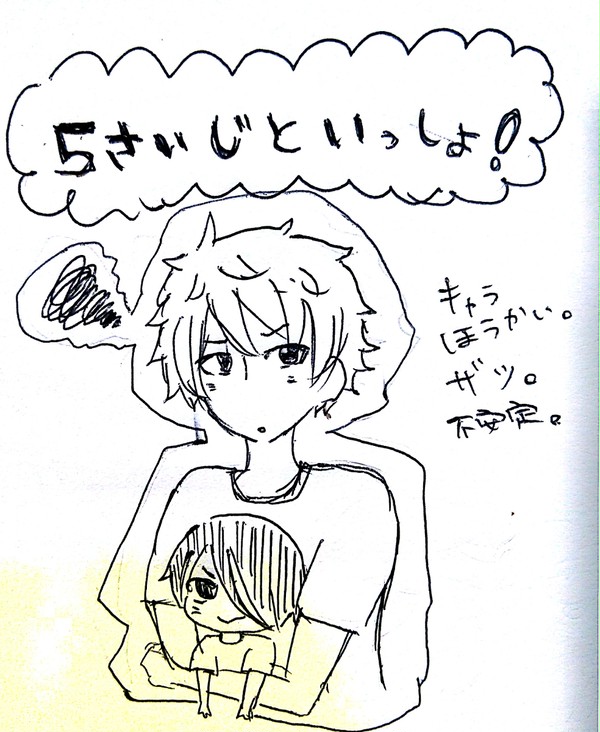 5さいじといっしょ!
キャラ
ほうかい。
ザツ。
不安定。